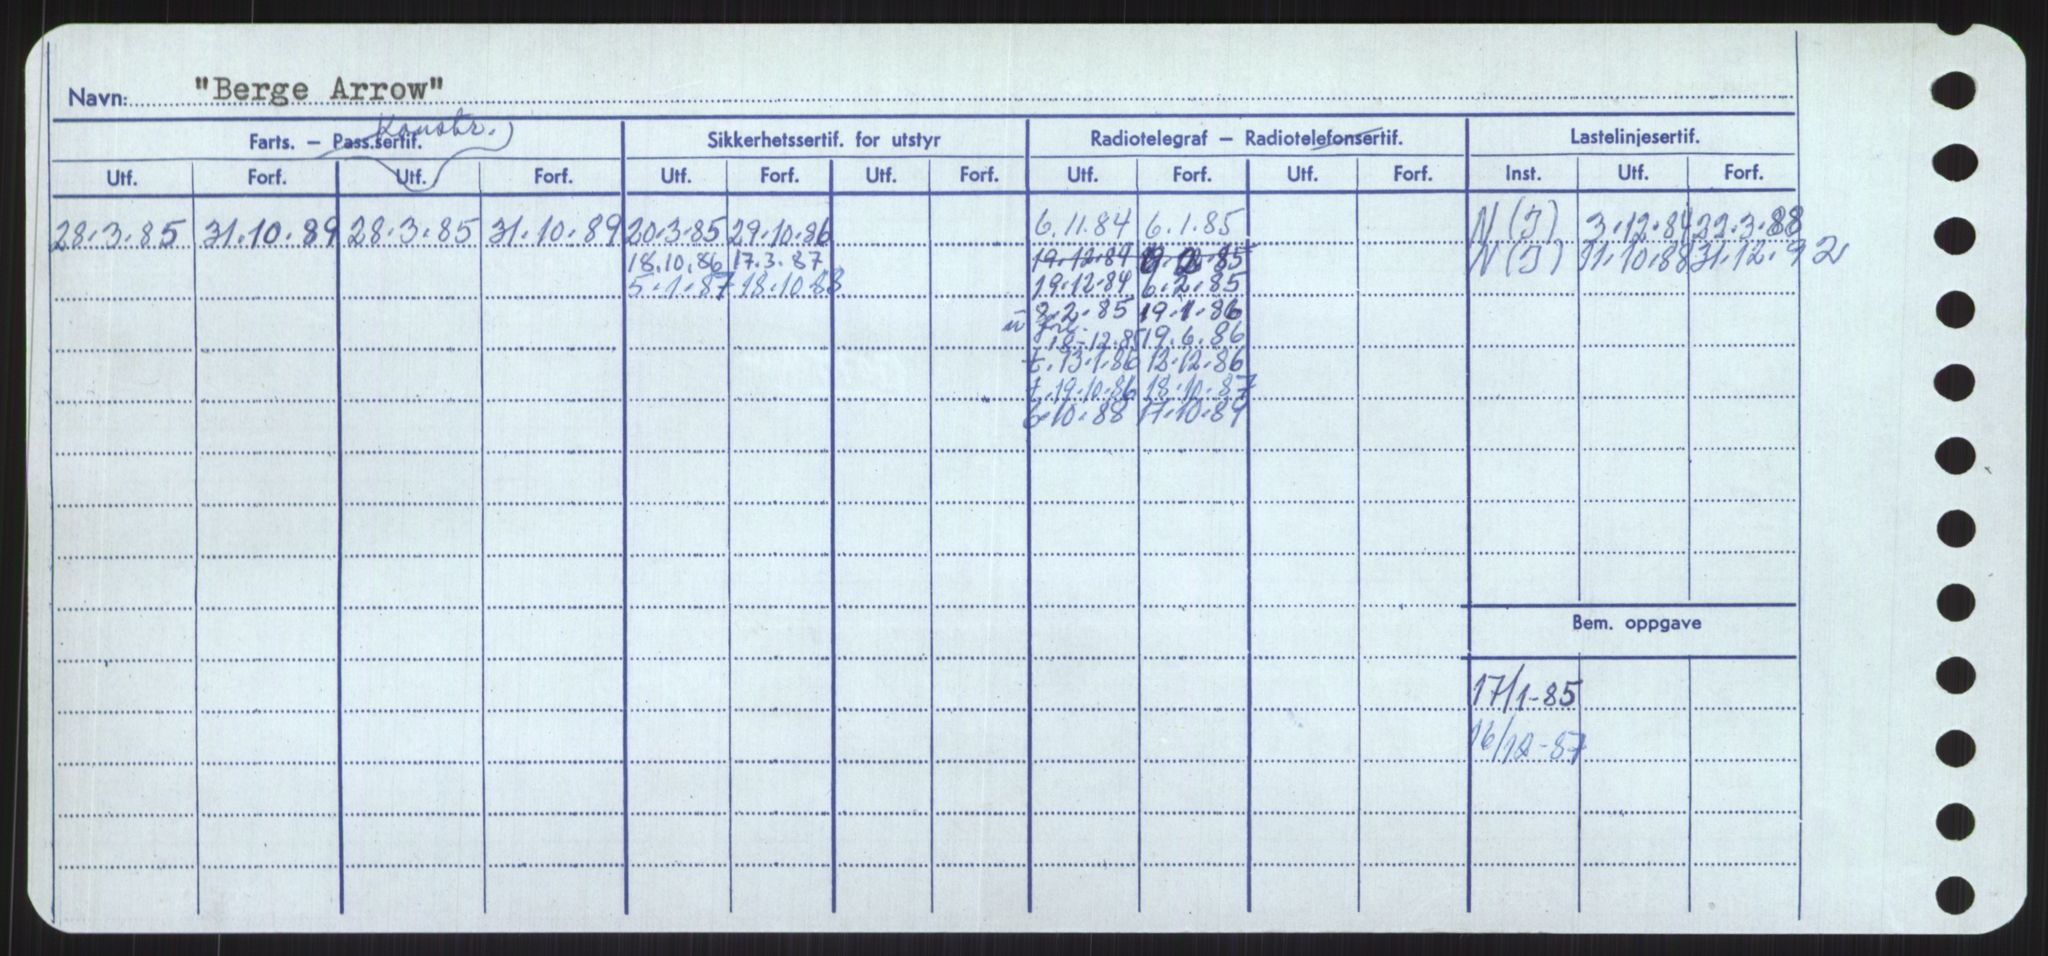 Navn: "Berge Arrow"
Konstr.
Farts. — Pass.sertif. Sikkerhetssertif. for utstyr Radiotelegraf — Radiotelefonsertif. Lastelinjesertif.
Utf. Forf. Utf. Forf. Utf. Forf. Utf. Forf. Utf. Forf. Utf. Forf. Inst. Utf. Forf.
28.3.85 31.10.89 28.3.85 31.10.89 20.3.85 29.10.86 6.11.84 6.1.85 N (I) 3.12.84 22.3.88
18.10.86 17.3.87 19.12.84 2.85 N (I) 11.10.88 31.12.92
5.1.87 18.10.88 19.12.84 6.2.85
8.2.85 19.1.86
18-12.85 19.6.86
t.13.1.86 12.12.86
t.19.10.86 18.10.87
6.10.88 17.10.89
Bem. oppgave
17/1-85
16/12-87